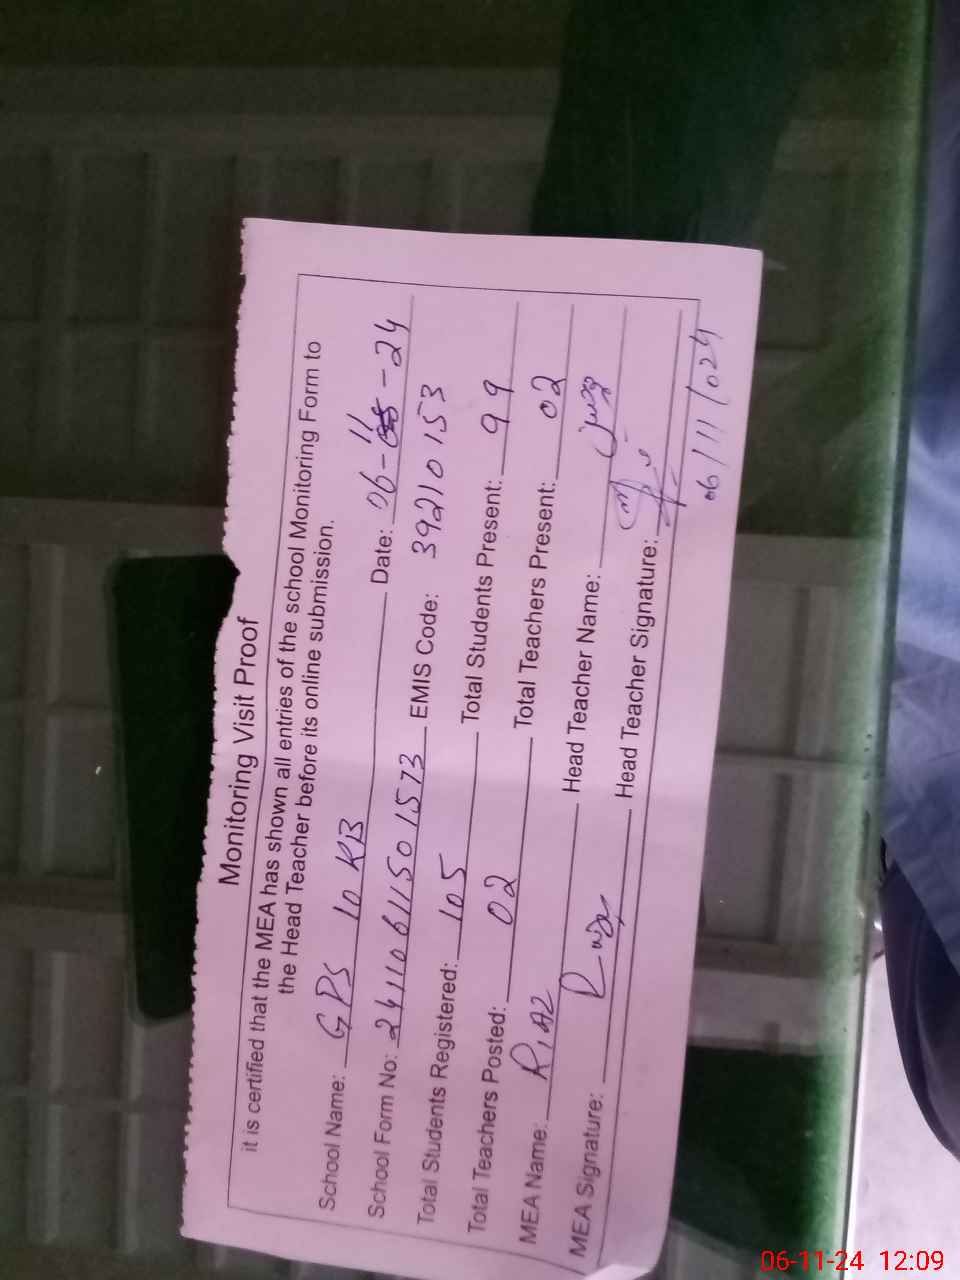 Monitoring Visit Proof
it is certified that the MEA has shown all entries of the school Monitoring Form to
the Head Teacher before its online submission.
School Name: GPS 10 KB Date: 06-11-24
School Form No: 24110611501573 EMIS Code: 39210153
Total Students Registered: 105 Total Students Present: 99
Total Teachers Posted: 02 Total Teachers Present: 02
MEA Name: RiAZ Head Teacher Name:
MEA Signature: Head Teacher Signature:
06/11/024
06-11-24 12:09